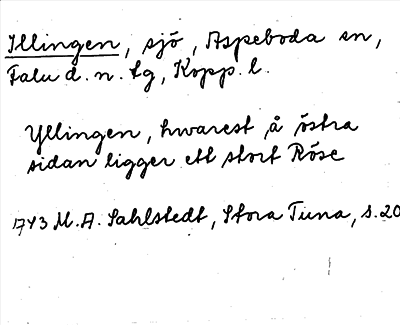 Illingen, sjö, Aspeboda sn,
Falu d. n. tg, Kopp. l.
Yllingen, hwarest å östra
sidan ligger ett stort Röse
1743 M. A. Sahlstedt, Stora Tuna, s. 20